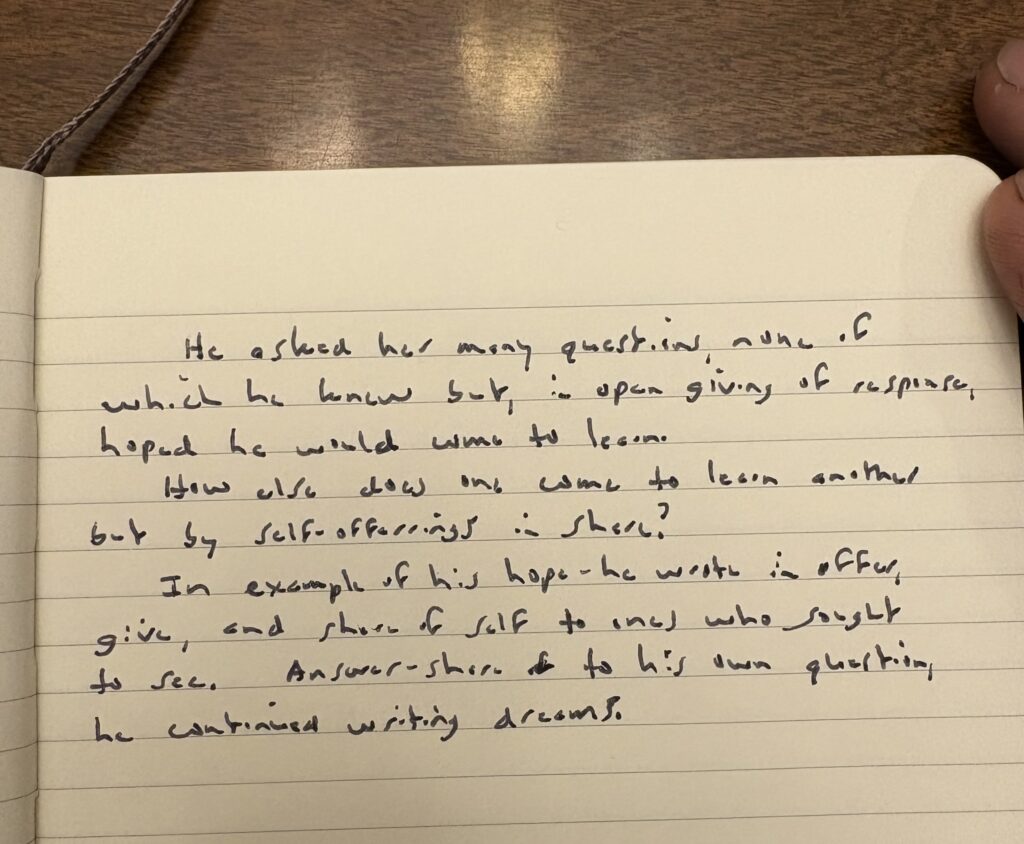 He asked her many questions, none of
which he knew but, in open giving of response,
hoped he would come to learn.
How else does one come to learn another
but by self-offerrings in share?
In example of his hope - he wrote in offer,
give, and share of self to ones who sought
to see. Answer-share to his own question,
he continued writing dreams.